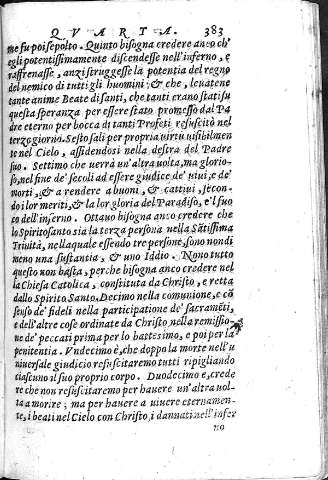 QVARTA. 383
me fu poi sepolto. Quinto bisogna credere anco ch'
egli potentissimamente discendesse nell'inferno, e
raffrenasse, anzi struggesse la potentia del regno
del nemico di tutti gli huomini, & che, leuatene
tante anime Beate di santi, che tanti erano stati su
questa speranza per essere stato promesso dal Pa
dre eterno per bocca di tanti Profeti resuscitò nel
terzo giorno. Sesto salì per propria virtù visibilmen
te nel Cielo, assidendosi nella destra del Padre
suo. Settimo che uerrà un'altra uolta, ma glorio-
so, nel fine de' secoli ad essere giudice de' uiui, e de'
morti, & a rendere a buoni, & cattiui, secon-
do i lor meriti, & la lor gloria del Paradiso, e'l fuo
co dell'inferno. Ottauo bisogna anco credere che
lo Spirito santo sia la terza persona nella Sãtissima
Trinità, nella quale essendo tre persone, sono nondi
meno una sustantia, & uno Iddio. Nono tutto
questo non basta, perche bisogna anco credere nel
la Chiesa Catolica, constituta da Christo, e retta
dallo Spirito Santo. Decimo nella comunione, e cõ
senso de' fideli nella participatione de' sacramẽti,
e dell'altre cose ordinate da Christo nella remissio-
ne de' peccati prima per lo battesimo, e poi per la
penitentia. Vndecimo è, che doppo la morte nell'u
niuersale giudicio resuscitaremo tutti ripigliando
ciascuno il suo proprio corpo. Duodecimo è, crede
re che non resuscitaremo per hauere un'altra uol-
ta a morire; ma per hauere a uiuere eternamen-
te, i beati nel Cielo con Christo, i dannati nell'infer
no